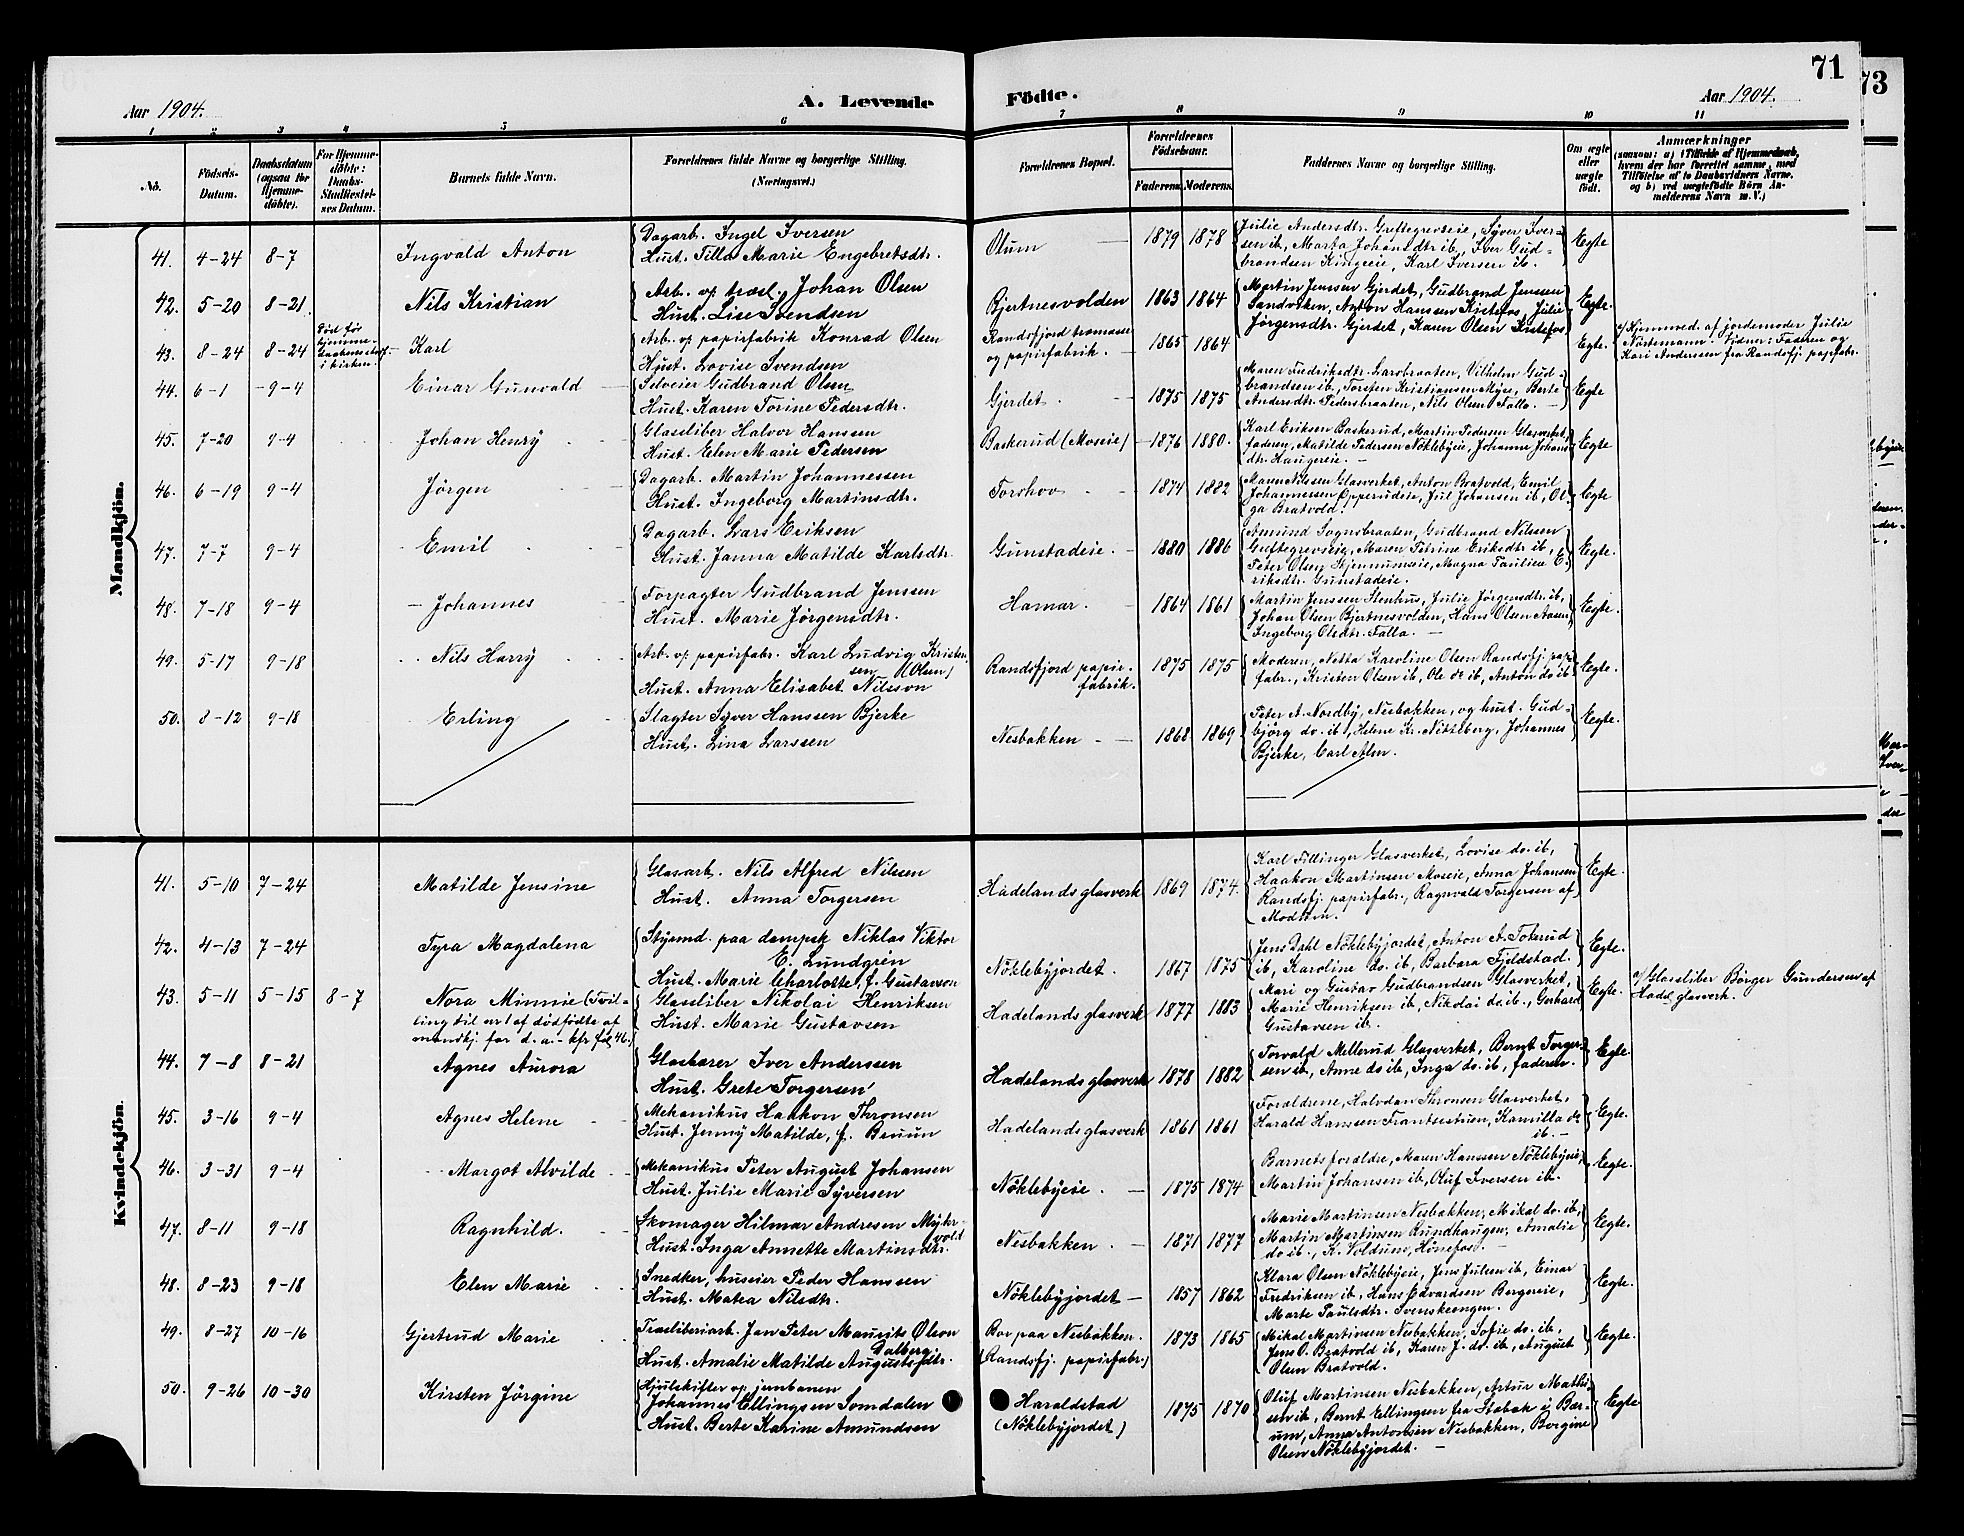 71
73
Aar 1904.
A. Levende
Födte.
Aar 1904.
1 2 3 4 5 6 7 8 9 10 11
No.
Födsels-Datum.
Daabsdatum (ogsaa for Hjemmedöbte).
For Hjemmedöbte: Daabs-Stadfæstelses Datum.
Barnets fulde Navn.
Forældrenes fulde Navne og borgerlige Stilling.
(Næringsvei.)
Forældrenes Bopæl.
Forældrenes Födselsaar.
Faderens. Moderens.
Faddernes Navne og borgerlige Stilling.
Om ægte eller uægte födt.
Anmærkninger
(saasom: a) i Tilfælde af Hjemmedaab, hvem der har forrettet samme, med Tilföielse af to Daabsvidners Navne, og b) ved uægtefödte Börn Anmelderens Navn m. V.)
Mandkjön.
41. 4-24 8-7 Ingvald Anton
Dagarb. Ingel Iversen
Hust. Tilla Marie Engebretsdtr.
Olum 1879 1878
Julie Andersdtr. Guftegrevseie, Syver Iver-
sen ib, Marta Johansdtr ib, Iver Gud-
brandsen Kingeeie, Karl Iversen ib.
Egte
42. 5-20 8-21 Nils Kristian
Arb. v/ træsl. Johan Olsen
Hust. Lise Svendsen
Bjertnesvolden 1863 1864
Martin Jenssen Gjerdet, Gudbrand Jenssen
Sandviken, Anton Hanssen Kistefos, Julie
Jörgensdtr. Gjerdet, Karen Olsen Kistefos
Egte.
43. 8-24 8-24
Död før
hjemme-
daabens stadf.
i kirken
Karl
Arb. v/ papirfabrik Konrad Olsen
Hust. Lovise Svendsen
Randsfjord træmasse
og papirfabrik. 1865 1864
Egte.
a/ Hjemmed. af jordemoder Julie
Nortemann. Vidner: Faderen og
Kari Andersen fra Randsfj. papfabr.
44. 6-1 9-4 Einar Gunvald
Selveier Gudbrand Olsen
Hust. Karen Torine Pedersdtr.
Gjerdet. 1875 1875
Maren Fredriksdtr. Larsbraaten, Vilhelm Gud-
brandsen ib, Torsten Kristiansen Myre, Berte
Andersdtr. Pedersbraaten, Nils Olsen Falla.
Egte
45. 7-20 9-4 Johan Henry
Glassliber Halvor Hanssen
Hust. Elen Marie Pedersen
Baskerud (Moseie) 1876 1880.
Karl Eriksen Baskerud, Martin Pedersen Glasverket,
faderen, Matilde Pedersen Nöklebyeie, Johanne Johans-
dtr. Haugereie.
Egte
46. 6-19 9-4 Jörgen
Dagarb. Martin Johannessen
Hust. Ingeborg Martinsdtr.
Torshov 1874 1882
Maren Nilssen Glasverket, Anton Bratvold, Emil
Johannessen Opperudeie, Jul Johansen ib, Ol-
ga Bratvold.
Egte
47. 7-7 9-4 Emil
Dagarb. Lars Eriksen
Hust. Janna Matilde Karlsdtr.
Gunstadeie. 1880 1886
Amund Sognsbraaten, Gudbrand Nilssen
Guftegrevseie, Maren Petrine Eriksdtr ib,
Peter Olsen Stjennumseie, Magna Pauline E-
riksdtr. Gunstadeie.
Egte.
48. 7-18 9-4 Johannes
Forpagter Gudbrand Jenssen
Hust. Marie Jörgensdtr.
Hamar. 1864 1861
Martin Jenssen Stenhus, Julie Jörgensdtr. ib,
Johan Olsen Bjertnesvolden, Hans Olsen Aasen
Ingeborg Olsdtr. Falla.
Egte.
49. 5-17 9-18 Nils Harry
Arb. v/ papirfabr. Karl Ludvig Kristen-
sen (Olsen)
Hust. Anna Elisabet Nilsson
Randsfjord papir-
fabrik. 1875 1875
Moderen, Netta Karoline Olsen Randsfj. papir
fabr., Kristen Olsen ib, Ole do ib, Anton do ib
Egte.
50. 8-12 9-18 Erling
Slagter Syver Hanssen Bjerke
Hust. Lina Larssen
Nesbakken 1868 1869
Peter A. Nordby, Nesbakken, og hust. Gud-
björg do. ib, Helene Kr. Nitteberg, Johannes
Bjerke, Carl Alm.
Egte.
Kvindekjön.
41. 5-10 7-24 Matilde Jensine
Glasarb. Nils Alfred Nilssen
Hust. Anna Torgersen
Hadelands glasverk 1869 1874.
Karl Fillinger Glasverket, Lovise do. ib,
Haakon Martinsen Moseie, Anna Johansen
Randsfj. papirfabr., Ragnvald Torgersen af
Modum.
Egte.
42. 4-13 7-24 Tyra Magdalena
Styrmd. paa dampsk Niklas Viktor
E. Lundgren
Hust. Marie Charlotte, f. Gustavson
Nöklebyjordet. 1867 1875
Jens Dahl Nöklebyjordet, Anton A. Toterud
ib, Karoline do. ib, Barbara Fjeldstad.
Egte.
43. 5-11 5-15 8-7 Nora Minnie (Tvil-
ling til nr 1 af dödfödte af
mandkj. for d. a. - kfr fol. 46.)
Glassliber Nikolai Henriksen
Hust. Marie Gustavsen
Hadelands glasverk 1877 1883
Mari og Gustav Gudbrandsen Glasverket,
Marie Henriksen ib, Nikolai do. ib, Gerhard
Gustavsen ib.
Egte.
a/ Glassliber Börger Gundersen af
Hadel. glasverk.
44. 7-8 8-21 Agnes Aurora
Glasbærer Iver Anderssen
Hust. Grete Torgersen
Hadelands glasverk 1878 1882
Torvald Mellerud Glasverket, Bernt Torger-
sen ib, Anne do ib, Inga do. ib, faderen.
Egte.
45. 3-16 9-4 Agnes Helene
Mekanikus Haakon Thronsen
Hust. Jenny Matilde, f. Bruun
Hadelands glasverk 1861 1861
Forældrene, Halvdan Thronsen Glasverket,
Harald Hanssen Frantsestuen, Kamilla do
ib.
Egte.
46. 3-31 9-4 Margot Alvilde
Mekanikus Peter August Johansen
Hust. Julie Marie Syversen
Nöklebyeie. 1875 1874
Barnets forældre, Maren Hanssen Nöklebyeie,
Martin Johansen ib, Oluf Iversen ib.
Egte.
47. 8-11 9-18 Ragnhild.
Skomager Hilmar Andresen Myhr-
vold
Hust. Inga Annette Martinsdtr.
Nesbakken. 1871 1877
Marie Martinsen Nesbakken, Mikal do. ib,
Martin Martinsen Rundhaugen, Amalie
do ib, K. Voldum, Hönefos.
Egte.
48. 8-23 9-18 Elen Marie
Snedker, huseier Peder Hanssen
Hust. Matea Nilsdtr.
Nöklebyjordet 1857 1862
Klara Olsen Nöklebyeie, Jens Julsen ib, Einar
Fredriksen ib, Hans Edvardsen Bergseie,
Marte Paulsdtr. Svenskeengen.
Egte.
49. 8-27 10-16 Gjertrud Marie
Træsliberiarb. Jan Peter Maurits Olson
Dalberg
Hust. Amalie Matilde Augustsdtr.
Bor paa Nesbakken.
(Randsfj. papirfabr.) 1873 1865
Mikal Martinsen Nesbakken, Sofie do. ib,
Jens O. Bratvold ib, Karen J. do. ib, August
Olsen Bratvold.
Egte.
50. 9-26 10-30 Kirsten Jörgine
Hjulskifter v/ jernbanen
Johannes Ellingsen Somdalen
Hust. Berte Karine Amundsen
Haraldstad
(Nöklebyjordet) 1875 1870
Oluf Martinsen Nesbakken, Artur Mathi-
sen ib, Bernt Ellingsen fra Stabæk i Bær-
um, Anna Antonsen Nesbakken, Borgine
Olsen Nöklebyjordet.
Egte